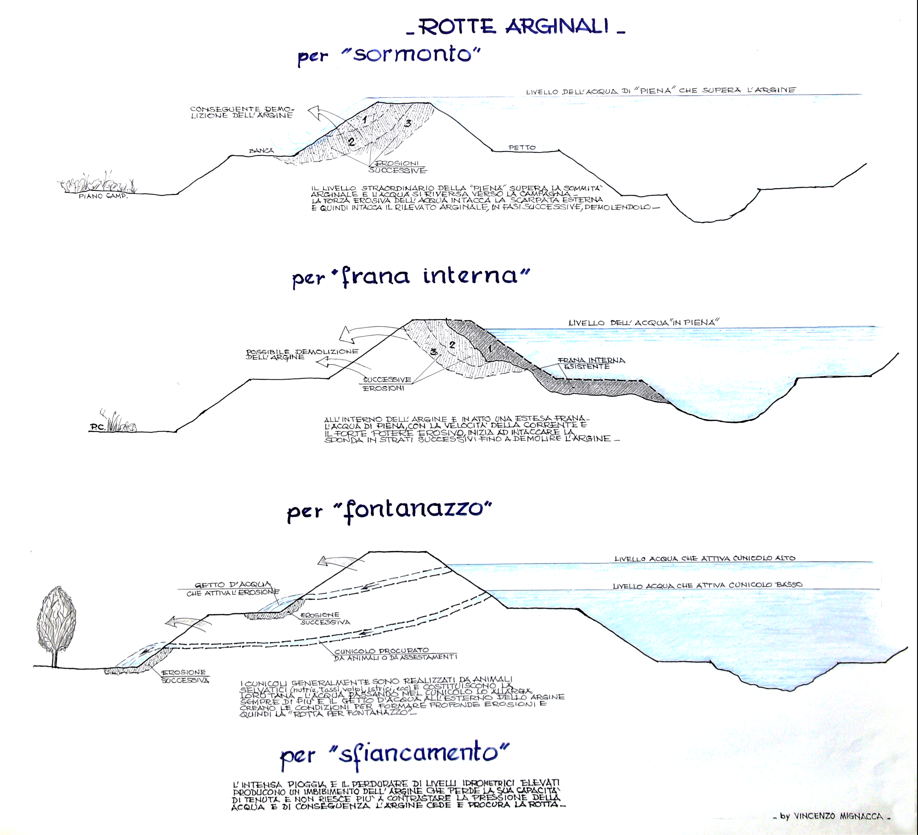 _ROTTE ARGINALI_
per "sormonto"
LIVELLO DELL'ACQUA DI "PIENA" CHE SUPERA L'ARGINE
CONSEGUENTE DEMO-
LIZIONE DELL'ARGINE
1
2
3
BANCA
PETTO
EROSIONI
SUCCESSIVE
PIANO CAMP.
IL LIVELLO STRAORDINARIO DELLA "PIENA" SUPERA LA SOMMITA'
ARGINALE E L'ACQUA SI RIVERSA VERSO LA CAMPAGNA_
LA FORZA EROSIVA DELL'ACQUA INTACCA LA SCARPATA ESTERNA
E QUINDI INTACCA IL RILEVATO ARGINALE, IN FASI SUCCESSIVE, DEMOLENDOLO_
per "frana interna"
LIVELLO DELL'ACQUA "IN PIENA"
POSSIBILE DEMOLIZIONE
DELL'ARGINE
1
2
3
FRANA INTERNA
ESISTENTE
SUCCESSIVE
EROSIONI
P.C.
ALL'INTERNO DELL'ARGINE E IN ATTO UNA ESTESA FRANA_
L'ACQUA DI PIENA, CON LA VELOCITA' DELLA CORRENTE E
IL FORTE POTERE EROSIVO, INIZIA AD INTACCARE LA
SPONDA IN STRATI SUCCESSIVI FINO A DEMOLIRE L'ARGINE_
per "fontanazzo"
LIVELLO ACQUA CHE ATTIVA CUNICOLO ALTO
LIVELLO ACQUA CHE ATTIVA CUNICOLO BASSO
GETTO D'ACQUA
CHE ATTIVA L'EROSIONE
EROSIONE
SUCCESSIVA
CUNICOLO PROCURATO
DA ANIMALI O DA ASSESTAMENTI
EROSIONE
SUCCESSIVA
I CUNICOLI GENERALMENTE SONO REALIZZATI DA ANIMALI
SELVATICI (nutrie, tassi, volpi, istrici, ecc) E COSTITUISCONO LA
LORO TANA_ L'ACQUA PASSANDO NEL CUNICOLO LO ALLARGA
SEMPRE DI PIU' E IL GETTO D'ACQUA ALL'ESTERNO DELLO ARGINE
CREANO LE CONDIZIONI PER FORMARE PROFONDE EROSIONI E
QUINDI LA "ROTTA PER FONTANAZZO"_
per "sfiancamento"
L'INTENSA PIOGGIA E IL PERDURARE DI LIVELLI IDROMETRICI ELEVATI
PRODUCONO UN IMBIBIMENTO DELL'ARGINE CHE PERDE LA SUA CAPACITA'
DI TENUTA E NON RIESCE PIU' A CONTRASTARE LA PRESSIONE DELLA
ACQUA E DI CONSEGUENZA L'ARGINE CEDE E PROCURA LA ROTTA_
_ by VINCENZO MIGNACCA _